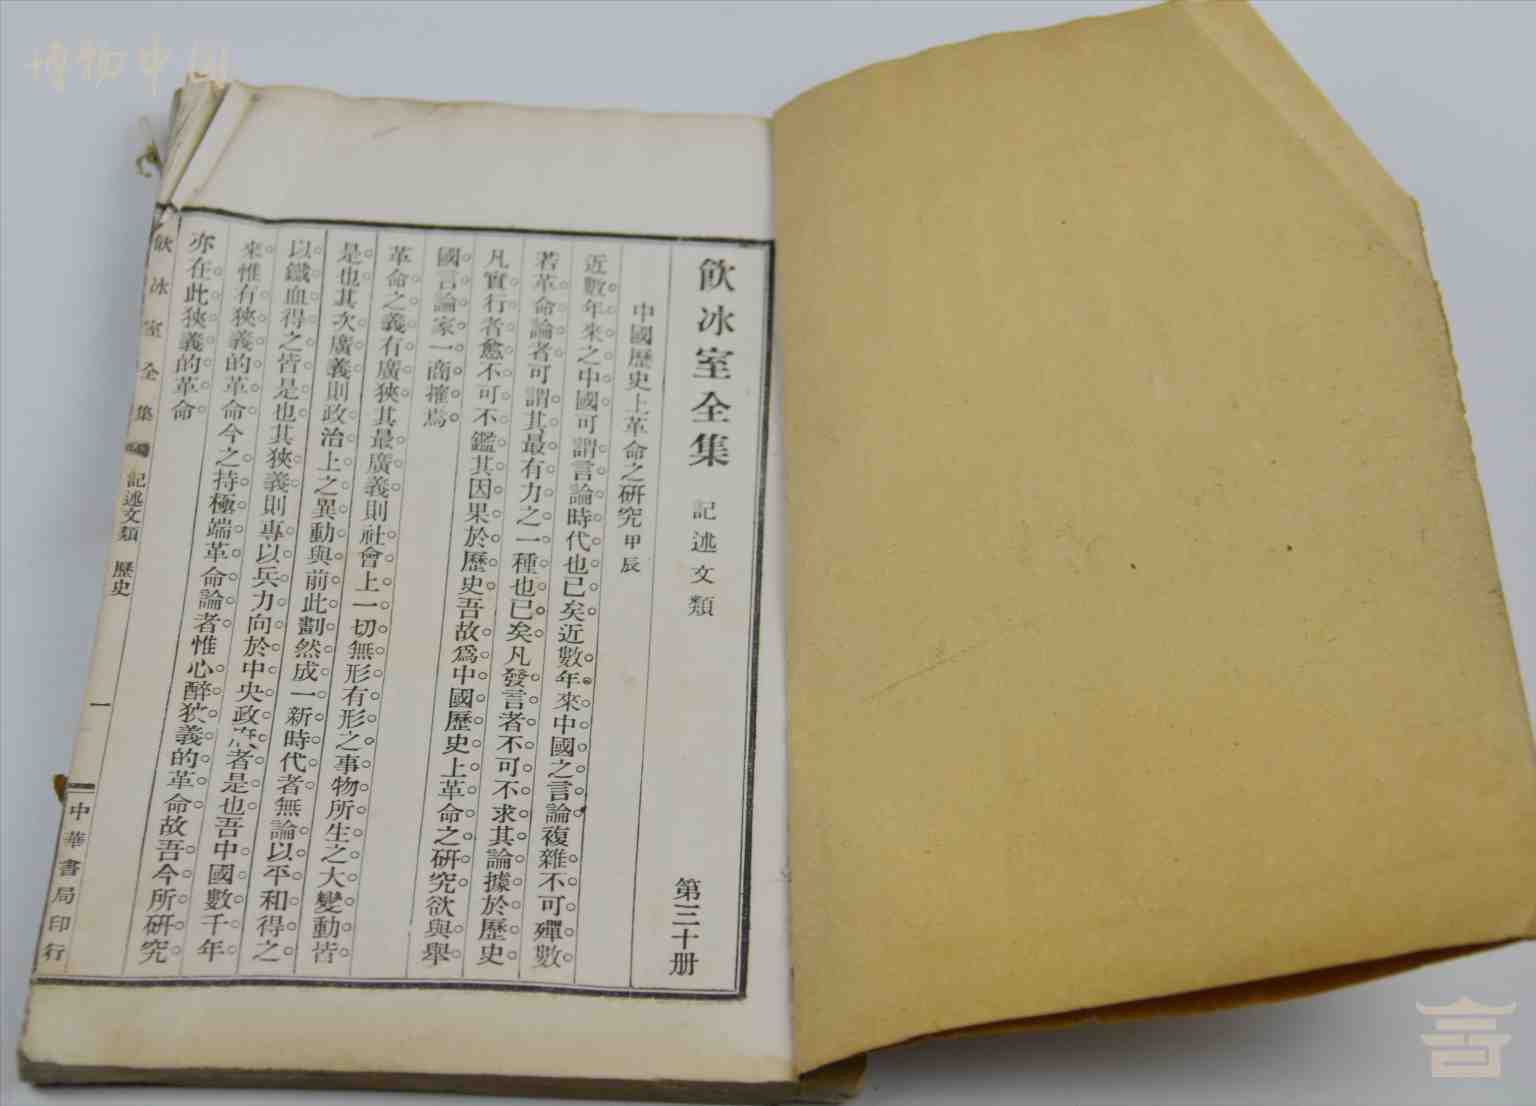 博物中国
飲冰室全集 記述文類 第三十册
中國歷史上革命之研究 甲辰
近數年來之中國可謂言論時代也已矣近數年來中國之言論複雜不可殫數
若革命論者可謂其最有力之一種也已矣凡發言者不可不求其論據於歷史
凡實行者愈不可不鑑其因果於歷史吾故爲中國歷史上革命之研究欲與舉
國言論家一商搉焉
革命之義有廣狹其最廣義則社會上一切無形有形之事物所生之大變動皆
是也其次廣義則政治上之異動與前此劃然成一新時代者無論以平和得之
以鐵血得之皆是也其狹義則專以兵力向於中央政府者是也吾中國數千年
來惟有狹義的革命今之持極端革命論者惟心醉狹義的革命故吾今所研究
亦在此狹義的革命
飲冰室全集 記述文類 歷史 一 中華書局印行